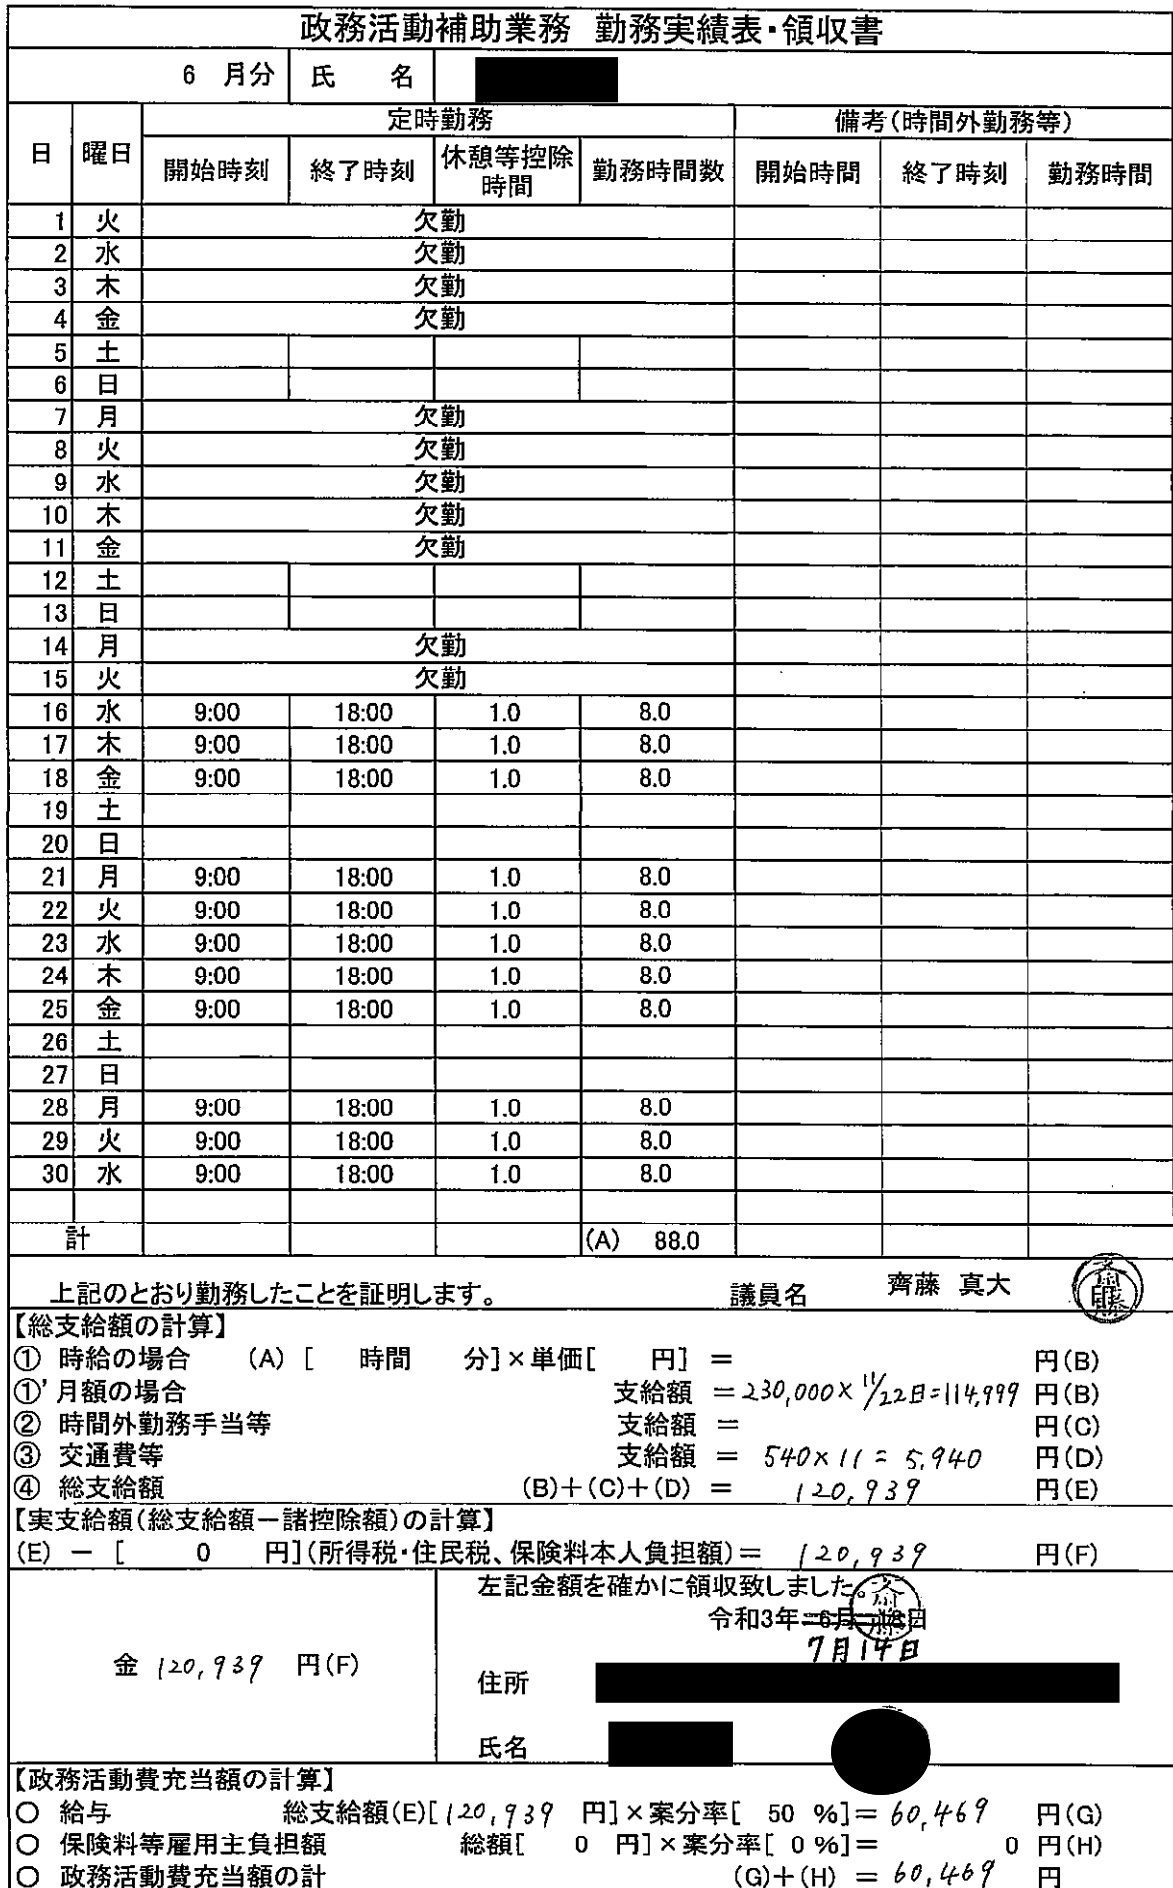 政務活動補助業務 勤務実績表・領収書
6 月分 氏 名
日 曜日 定時勤務 備考(時間外勤務等)
開始時刻 終了時刻 休憩等控除時間 勤務時間数 開始時間 終了時刻 勤務時間
1 火 欠勤
2 水 欠勤
3 木 欠勤
4 金 欠勤
5 土
6 日
7 月 欠勤
8 火 欠勤
9 水 欠勤
10 木 欠勤
11 金 欠勤
12 土
13 日
14 月 欠勤
15 火 欠勤
16 水 9:00 18:00 1.0 8.0
17 木 9:00 18:00 1.0 8.0
18 金 9:00 18:00 1.0 8.0
19 土
20 日
21 月 9:00 18:00 1.0 8.0
22 火 9:00 18:00 1.0 8.0
23 水 9:00 18:00 1.0 8.0
24 木 9:00 18:00 1.0 8.0
25 金 9:00 18:00 1.0 8.0
26 土
27 日
28 月 9:00 18:00 1.0 8.0
29 火 9:00 18:00 1.0 8.0
30 水 9:00 18:00 1.0 8.0
計 (A) 88.0
上記のとおり勤務したことを証明します。 議員名 齊藤 真大 齊藤
【総支給額の計算】
① 時給の場合 (A) [ 時間 分]×単価[ 円] = 円(B)
①'月額の場合 支給額 =230,000×11/22日=114,999 円(B)
② 時間外勤務手当等 支給額 = 円(C)
③ 交通費等 支給額 = 540×11=5,940 円(D)
④ 総支給額 (B)+(C)+(D) = 120,939 円(E)
【実支給額(総支給額-諸控除額)の計算】
(E) - [ 0 円](所得税・住民税、保険料本人負担額)= 120,939 円(F)
左記金額を確かに領収致しました。
令和3年 6月 18日
7月14日
金 120,939 円(F)
住所
氏名
【政務活動費充当額の計算】
○ 給与 総支給額(E)[120,939 円]×案分率[ 50 %]= 60,469 円(G)
○ 保険料等雇用主負担額 総額[ 0 円]×案分率[ 0 %]= 0 円(H)
○ 政務活動費充当額の計 (G)+(H) = 60,469 円